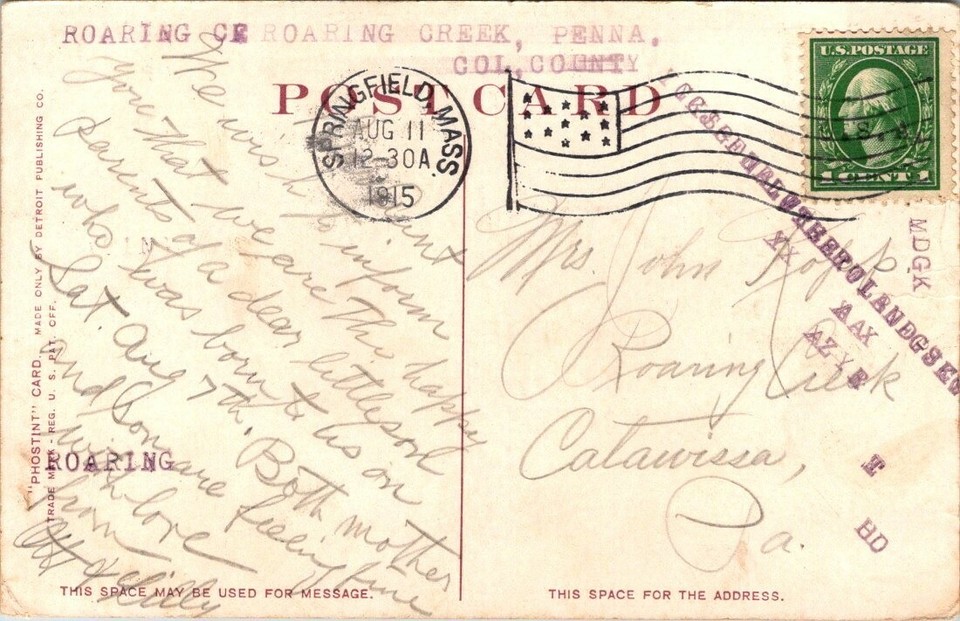 ROARING CR ROARING CREEK, PENNA.
COL, COUNTY
POST CARD
SPRINGFIELD, MASS.
AUG 11
12-30A
1915
U.S. POSTAGE
1 CENT 1
We wish to
you that we are the happy
parents of a dear little son
who was born to us on
Sat. Aug 7th. Both mother
and son are feeling fine
with love
from
& Lilly
inform
Aunt
IN
ROARING
Mrs. John
Roaring Creek
Catawissa,
Pa.
MDGK
XX
AAX
AZY
E
HD
"PHOSTINT" CARD. MADE ONLY BY DETROIT PUBLISHING CO.
TRADE MARK - REG. U. S. PAT. OFF.
THIS SPACE MAY BE USED FOR MESSAGE.
THIS SPACE FOR THE ADDRESS.